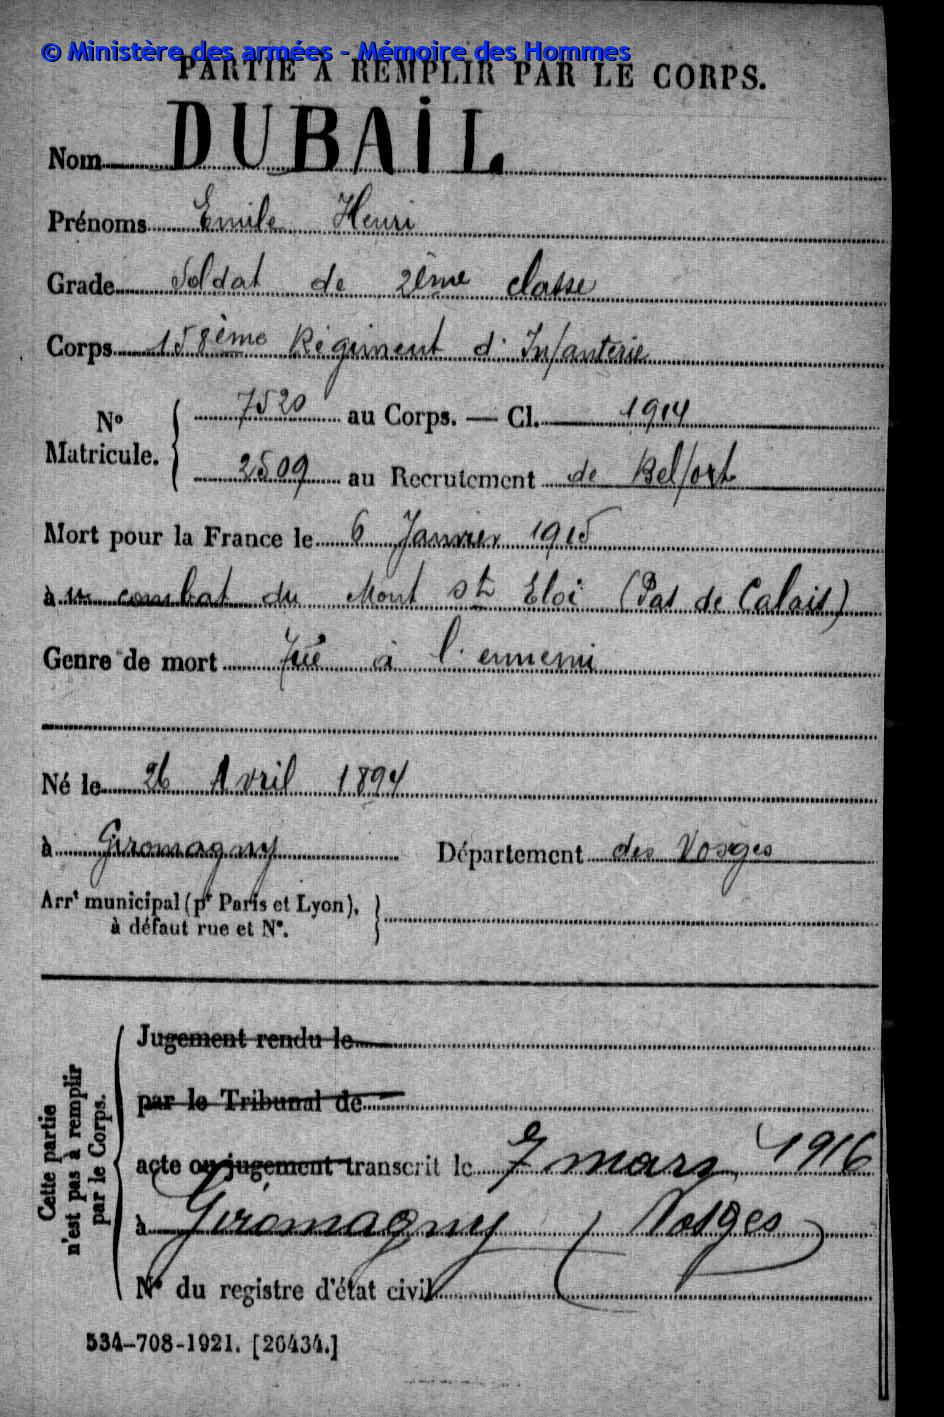 © Ministère des armées - Mémoire des Hommes
PARTIE À REMPLIR PAR LE CORPS.
Nom DUBAIL
Prénoms Emile Henri
Grade Soldat de 2ème classe
Corps 158ème Régiment d'Infanterie
N° Matricule. { 7520 au Corps. — Cl. 1914
2509 au Recrutement de Belfort
Mort pour la France le 6 Janvier 1915
à un combat du Mont St Eloi (Pas de Calais)
Genre de mort Tué à l'ennemi
Né le 26 Avril 1894
à Giromagny Département des Vosges
Arrt municipal (pr Paris et Lyon), à défaut rue et N°. }
Cette partie n'est pas à remplir par le Corps.
Jugement rendu le
par le Tribunal de
acte ou jugement transcrit le 7 mars 1916
à Giromagny (Vosges)
N° du registre d'état civil
534-708-1921. [26434.]